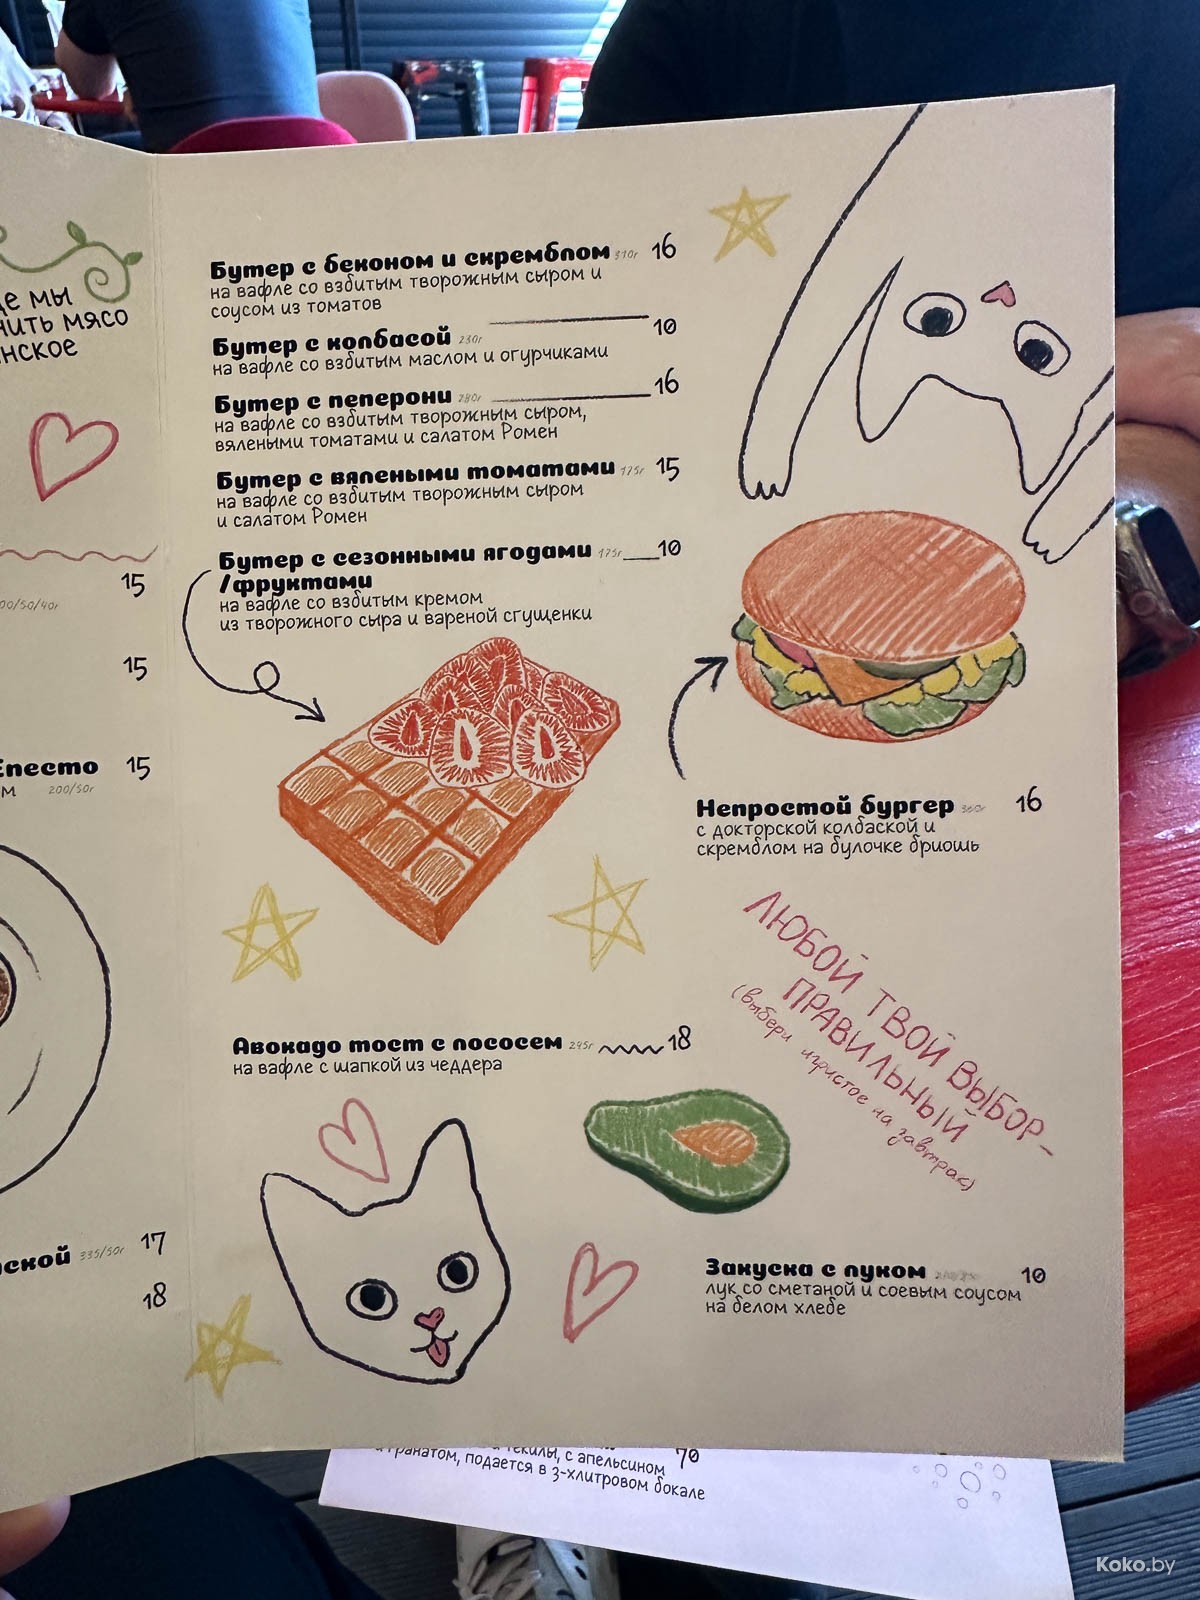 де мы
нить мясо
нское
15
00/50/40г
15
песто 15
м 200/50г
ской 335/50г 17
18
Бутер с беконом и скремблом 310г 16
на вафле со взбитым творожным сыром и
соусом из томатов
Бутер с колбасой 230г 10
на вафле со взбитым маслом и огурчиками
Бутер с пеперони 280г 16
на вафле со взбитым творожным сыром,
вялеными томатами и салатом Ромен
Бутер с вялеными томатами 175г 15
на вафле со взбитым творожным сыром
и салатом Ромен
Бутер с сезонными ягодами 175г 10
/фруктами
на вафле со взбитым кремом
из творожного сыра и вареной сгущенки
Непростой бургер 16
с докторской колбаской и
скремблом на булочке бриошь
ЛЮБОЙ ТВОЙ ВЫБОР -
ПРАВИЛЬНЫЙ
(выбери игристое на завтрак)
Авокадо тост с лососем 245г 18
на вафле с шапкой из чеддера
Закуска с луком 10
лук со сметаной и соевым соусом
на белом хлебе
текилы, с апельсином 70
и гранатом, подается в 3-хлитровом бокале
Koko.by